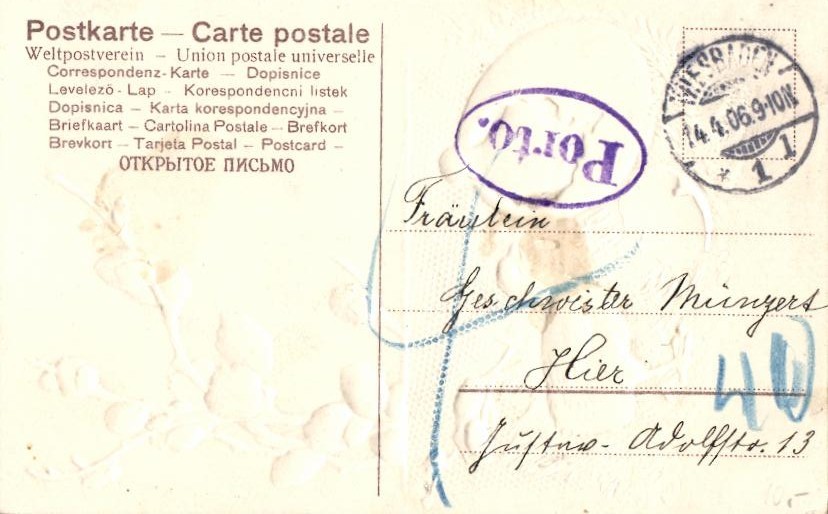 Postkarte — Carte postale
Weltpostverein — Union postale universelle
Correspondenz-Karte — Dopisnice
Levelezö-Lap — Korespondencni listek
Dopisnica — Karta korespondencyjna —
Briefkaart — Cartolina Postale — Brefkort
Brevkort — Tarjeta Postal — Postcard —
ОТКРЫТОЕ ПИСЬМО
WIESBADEN
14.4.06.9-10N.
* 1 1
Porto.
Fräulein
Geschwister Münzert
Hier
Gustav-Adolfstr. 13